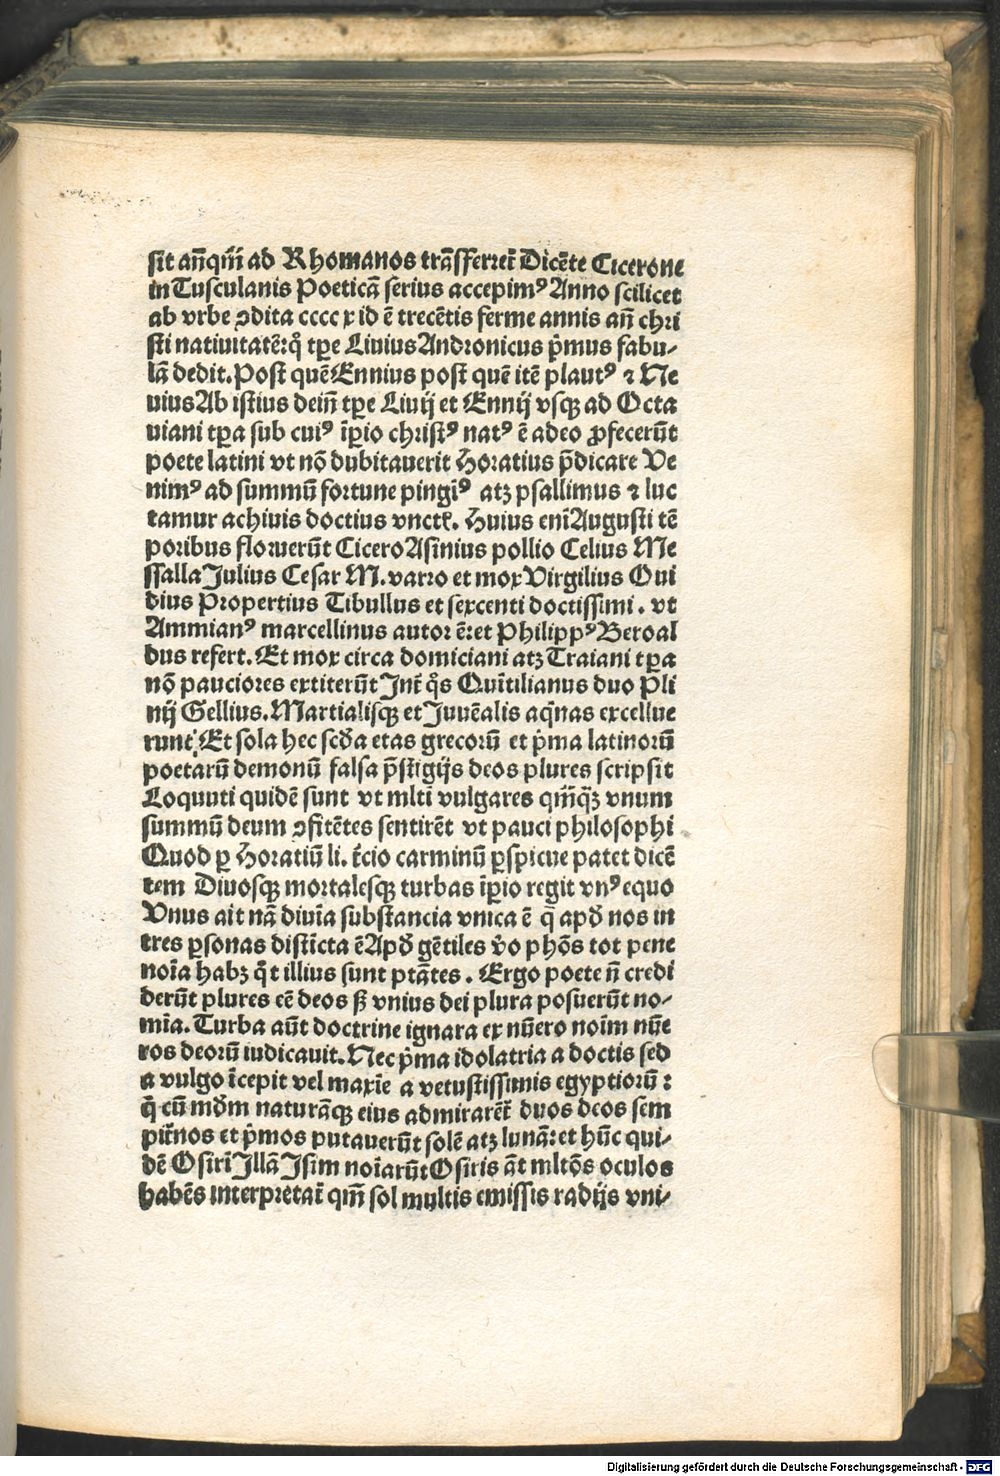 sit an̄qm̄ ad Rhomanos trāsferret᷑ Dicēte Cicerone
in Tusculanis Poeticā serius accepimꝰ Anno scilicet
ab vrbe ꝯdita cccc x id ē trecētis ferme annis an̄ chri
sti natiuitatē: qͦ tꝑe Liuius Andronicus pͥmus fabu-
lā dedit. Post quē Ennius post quē itē plautꝰ ⁊ Ne
uius Ab istius dein̄ tꝑe Liuij et Ennij vsqꝫ ad Octa
uiani tꝑa sub cuiꝰ īꝑio christꝰ natꝰ ē adeo ꝓfecerūt
poete latini vt nō dubitauerit Horatius p̄dicare Ve
nimꝰ ad summū fortune pingīꝰ atꝫ psallimus ⁊ luc
tamur achiuis doctius vnctꝭ. Huius enī Augusti tē
poribus floruerūt Cicero Asinius pollio Celius Me
ssalla Julius Cesar M. varro et mox Virgilius Oui
dius Propertius Tibullus et sexcenti doctissimi. vt
Ammianꝰ marcellinus autor ē: et Philippꝰ Beroal
dus refert. Et mox circa domiciani atꝫ Traiani tꝑa
nō pauciores extiterūt Int᷑ qͦs Quītilianus duo Pli
nij Gellius. Martialisqꝫ et Juuēalis aqͥnas excellue
runt: Et sola hec scd̄a etas grecorū et pͥma latinorū
poetarū demonū falsa p̄stigijs deos plures scripsit
Loquuti quidē sunt vt ml̄ti vulgares qm̄qꝫ vnum
summū deum ꝯfitētes sentirēt vt pauci philosophi
Quod ꝑ Horatiū li. t᷑cio carminū ꝑspicue patet dicē
tem Diuosqꝫ mortalesqꝫ turbas īꝑio regit vnꝰ equo
Vnus ait nā diuīa substancia vnica ē q̄ apd̄ nos in
tres ꝑsonas distīcta ē Apd̄ gētiles v̊o phōs tot pene
noīa habꝫ qͦt illius sunt ptātes. Ergo poete n̄ credi
derūt plures eē deos sꝫ vnius dei plura posuerūt no-
mīa. Turba aūt doctrine ignara ex nūero noīm nūe
ros deorū iudicauit. Nec pͥma idolatria a doctis sed
a vulgo īcepit vel maxīe a vetustissimis egyptiorū:
qͥ cū md̄m naturāqꝫ eius admirarēt᷑ duos deos sem
pit᷑nos et pͥmos putauerūt solē atꝫ lunā: et hūc qui-
dē Osirī Illā Isim noīarūt Osiris āt ml̄tōs oculos
habēs interpretat᷑ qm̄ sol multis emissis radijs vni-
Digitalisierung gefördert durch die Deutsche Forschungsgemeinschaft - DFG